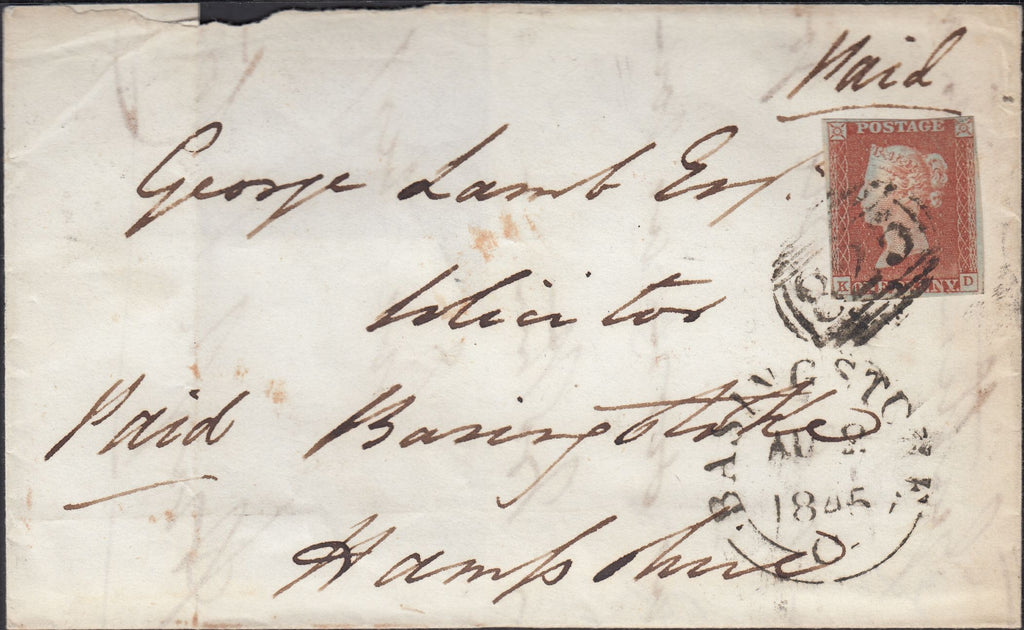 Paid
POSTAGE
George Lamb Esq.
K D
Solicitor
BASINGSTOKE
Paid Basingstoke
AU
1845
Hampshire